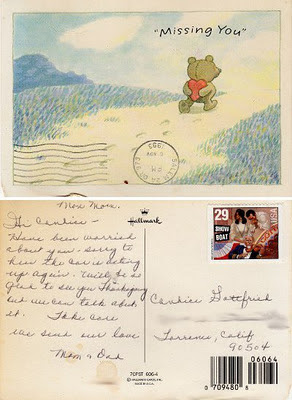 "Missing You"
1993
PM
Mon Morn.
Hallmark
Hi Candice -
Have been worried
about you - sorry to
hear the car is acting
up again. We'll be so
glad to see you Thanksgiving
but we can talk about
it. Take care
we send our love
Mom & Dad
29
USA
SHOW
BOAT
Candice Gottfried
Torrance, Calif
90504
7CPST 606-4
© HALLMARK CARDS, INC.
MADE IN U.S.A.
06064
0 709480 8